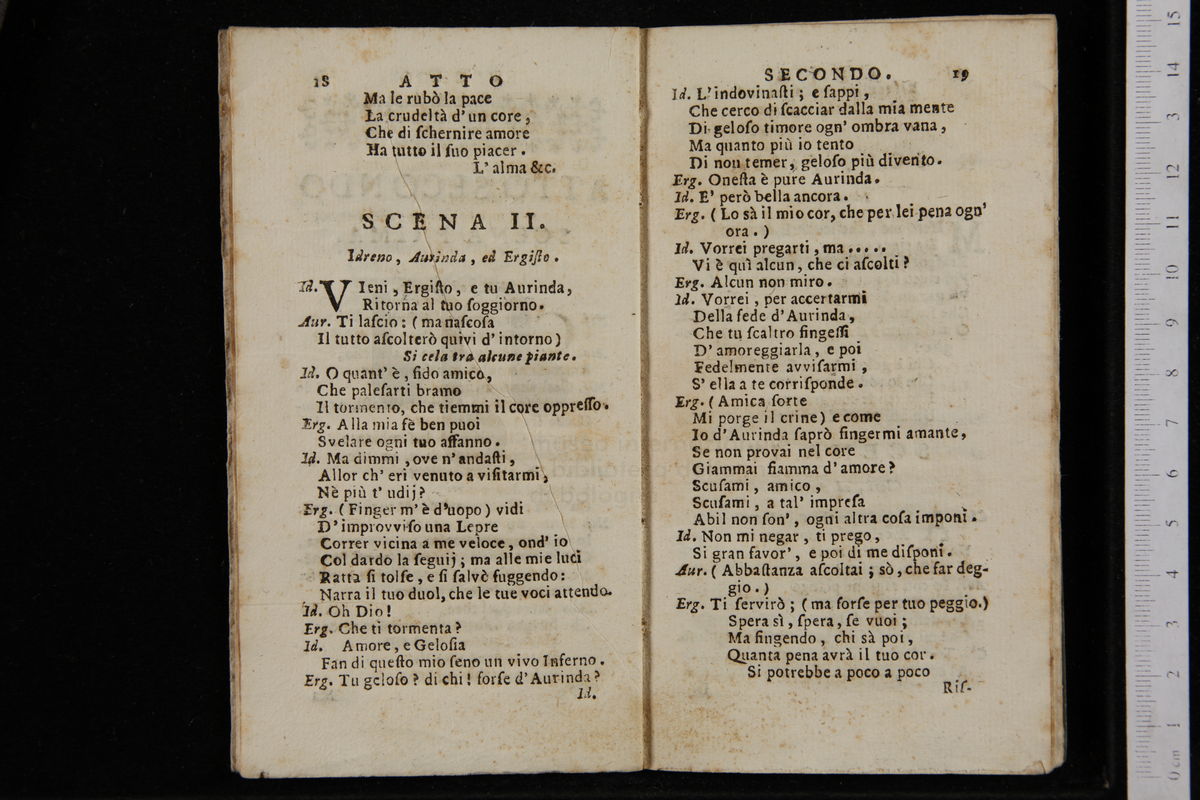 18 ATTO
Ma le rubò la pace
La crudeltà d' un core,
Che di ſchernire amore
Ha tutto il ſuo piacer.
L' alma &c.
SCENA II.
Idreno, Aurinda, ed Ergiſto.
Id. VIeni, Ergiſto, e tu Aurinda,
Ritorna al tuo ſoggiorno.
Aur. Ti laſcio: (ma naſcoſa
Il tutto aſcolterò quivi d' intorno)
Si cela tra alcune piante.
Id. O quant' è, fido amico,
Che paleſarti bramo
Il tormento, che tiemmi il core oppreſſo.
Erg. Alla mia fè ben puoi
Svelare ogni tuo affanno.
Id. Ma dimmi, ove n' andaſti,
Allor ch' eri venuto a viſitarmi,
Nè più t' udij?
Erg. (Finger m' è d'uopo) vidi
D' improvviſo una Lepre
Correr vicina a me veloce, ond' io
Col dardo la ſeguij; ma alle mie luci
Ratta ſi tolſe, e ſi ſalvè fuggendo:
Narra il tuo duol, che le tue voci attendo.
Id. Oh Dio!
Erg. Che ti tormenta?
Id. Amore, e Geloſia
Fan di queſto mio ſeno un vivo Inferno.
Erg. Tu geloſo? di chi! forſe d' Aurinda?
Id.
SECONDO. 19
Id. L' indovinaſti; e ſappi,
Che cerco di ſcacciar dalla mia mente
Di geloſo timore ogn' ombra vana,
Ma quanto più io tento
Di non temer, geloſo più divento.
Erg. Oneſta è pure Aurinda.
Id. E' però bella ancora.
Erg. (Lo sà il mio cor, che per lei pena ogn'
ora.)
Id. Vorrei pregarti, ma.....
Vi è quì alcun, che ci aſcolti?
Erg. Alcun non miro.
Id. Vorrei, per accertarmi
Della fede d' Aurinda,
Che tu ſcaltro fingeſſi
D' amoreggiarla, e poi
Fedelmente avviſarmi,
S' ella a te corriſponde.
Erg. (Amica ſorte
Mi porge il crine) e come
Io d' Aurinda ſaprò fingermi amante,
Se non provai nel core
Giammai fiamma d' amore?
Scuſami, amico,
Scuſami, a tal' impreſa
Abil non ſon', ogni altra coſa imponi.
Id. Non mi negar, ti prego,
Si gran favor', e poi di me diſponi.
Aur. (Abbaſtanza aſcoltai; sò, che far deg-
gio.)
Erg. Ti ſervirò; (ma forſe per tuo peggio.)
Spera sì, ſpera, ſe vuoi;
Ma fingendo, chi sà poi,
Quanta pena avrà il tuo cor.
Si potrebbe a poco a poco
Riſ-